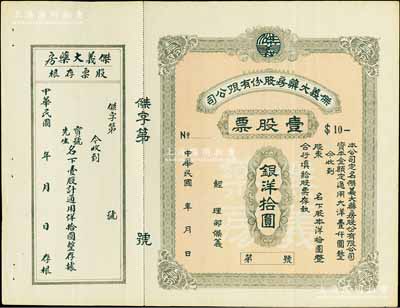 傑義大藥房股份有限公司
壹股票
$10—
No
本公司定名傑義大藥房股份有限公司
資產金額定通用大洋壹仟圓整
今收到
股東 名下股本洋拾圓整
合行填給股票存執
銀洋拾圓
經理鄒傑義
中華民國 年 月 日
第 號
傑字第 號
傑義大藥房
股票存根
傑字第 號
今收到
寶號
先生 名下壹股計通用洋拾圓整存據
中華民國 年 月 日 存根